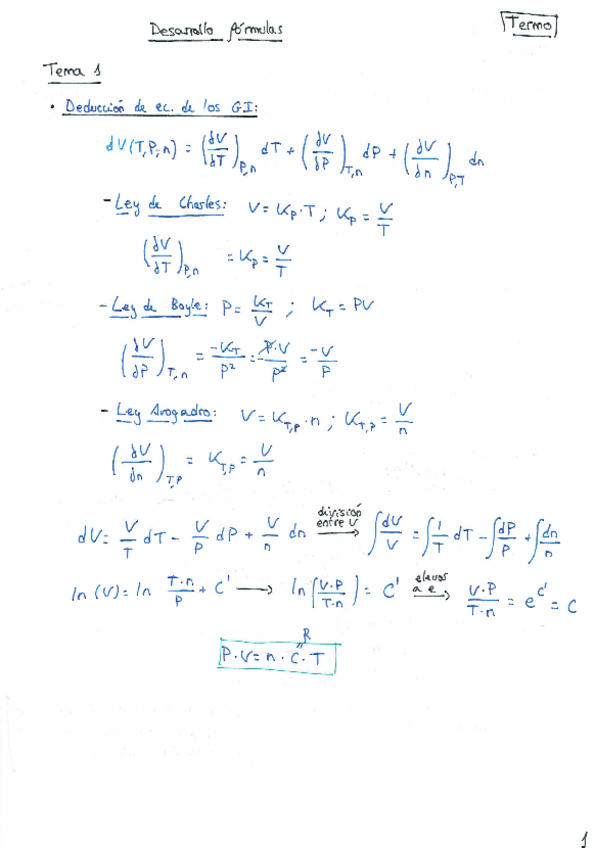 Desarrollo fórmulas
Termo
Tema 1
• Deducción de ec. de los GI:
dV(T,P,n) = (dV/dT)P,n dT + (dV/dP)T,n dP + (dV/dn)P,T dn
- Ley de Charles: V = Kp·T ; Kp = V/T
(dV/dT)P,n = Kp = V/T
- Ley de Boyle: P = KT/V ; KT = PV
(dV/dP)T,n = -KT/P² = -P·V/P² = -V/P
- Ley Avogadro: V = KT,P·n ; KT,P = V/n
(dV/dn)T,P = KT,P = V/n
dV = V/T dT - V/P dP + V/n dn división entre V → ∫dV/V = ∫1/T dT - ∫dP/P + ∫dn/n
ln(V) = ln T·n/P + C' → ln(V·P/T·n) = C' elevas a e → V·P/T·n = e^C' = C
R
"
P·V = n·C·T
1